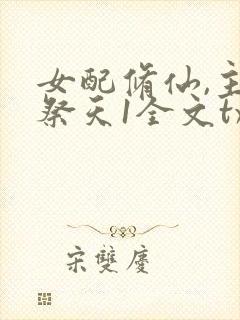 女配修仙,主
祭天1全文tx
宋雙慶